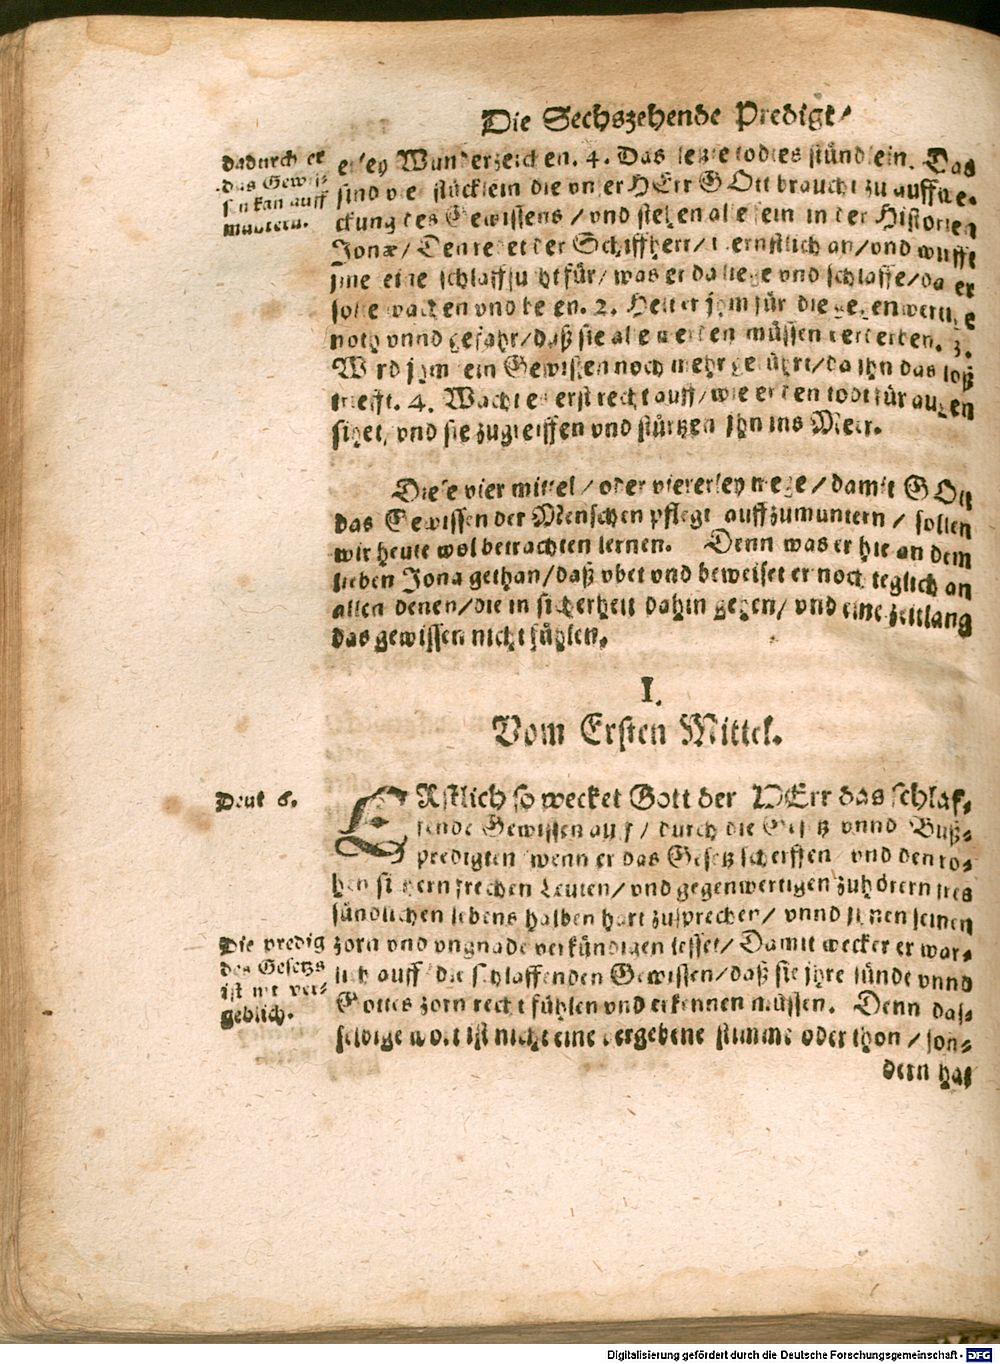 Die Sechszehende Predigt/
dadurch er
das Gewis-
sen kan auff
muntern.
erley Wunderzeichen. 4. Das letzte todtes stündlein. Das
sind vier stücklein die vnser HErr GOtt braucht zu auffwe-
ckung des Gewissens/vnd stehen alle fein in der Historien
Jonæ/Denn redet der Schiffherr/ ernstlich an/vnd wufft
jme eine schlaffsucht für/was er da liege vnd schlaffe/da er
solle wachen vnd beten. 2. Helt er jhm für die gegenwertige
noth vnnd gefahr/daß sie alle werden müssen verderben. 3.
Wird jhm sein Gewissen noch mehr gerührt/da jhn das loß
trifft. 4. Wacht es erst recht auff/wie er den todt für augen
sihet, vnd sie zugreiffen vnd stürtzen jhn ins Meer.
Diese vier mittel/oder viererley wege/damit GOtt
das Gewissen der Menschen pflegt auffzumuntern/sollen
wir heute wol betrachten lernen. Denn was er hie an dem
lieben Jona gethan/daß vbet vnd beweiset er noch teglich an
allen denen/die in sicherheit dahin gehen/vnd eine zeitlang
das gewissen nicht fühlen.
I.
Vom Ersten Mittel.
Deut 6.
ERstlich so wecket Gott der HErr das schlaf-
fende Gewissen auff/durch die Gesetz vnnd Buß-
predigten wenn er das Gesetz scherffen vnd den ro-
hen sichern frechen Leuten/vnd gegenwertigen zuhörern jres
sündlichen lebens halben hart zusprechen/vnnd jhnen seinen
zorn vnd vngnade verkündigen lesset/Damit wecket er war-
lich auff die schlaffenden Gewissen/daß sie jhre sünde vnnd
Gottes zorn recht fühlen vnd erkennen müssen. Denn das-
selbige wort ist nicht eine vergebene stimme oder thon/son-
Die predig
des Gesetzs
ist nit ver-
geblich.
dern hat
Digitalisierung gefördert durch die Deutsche Forschungsgemeinschaft - DFG